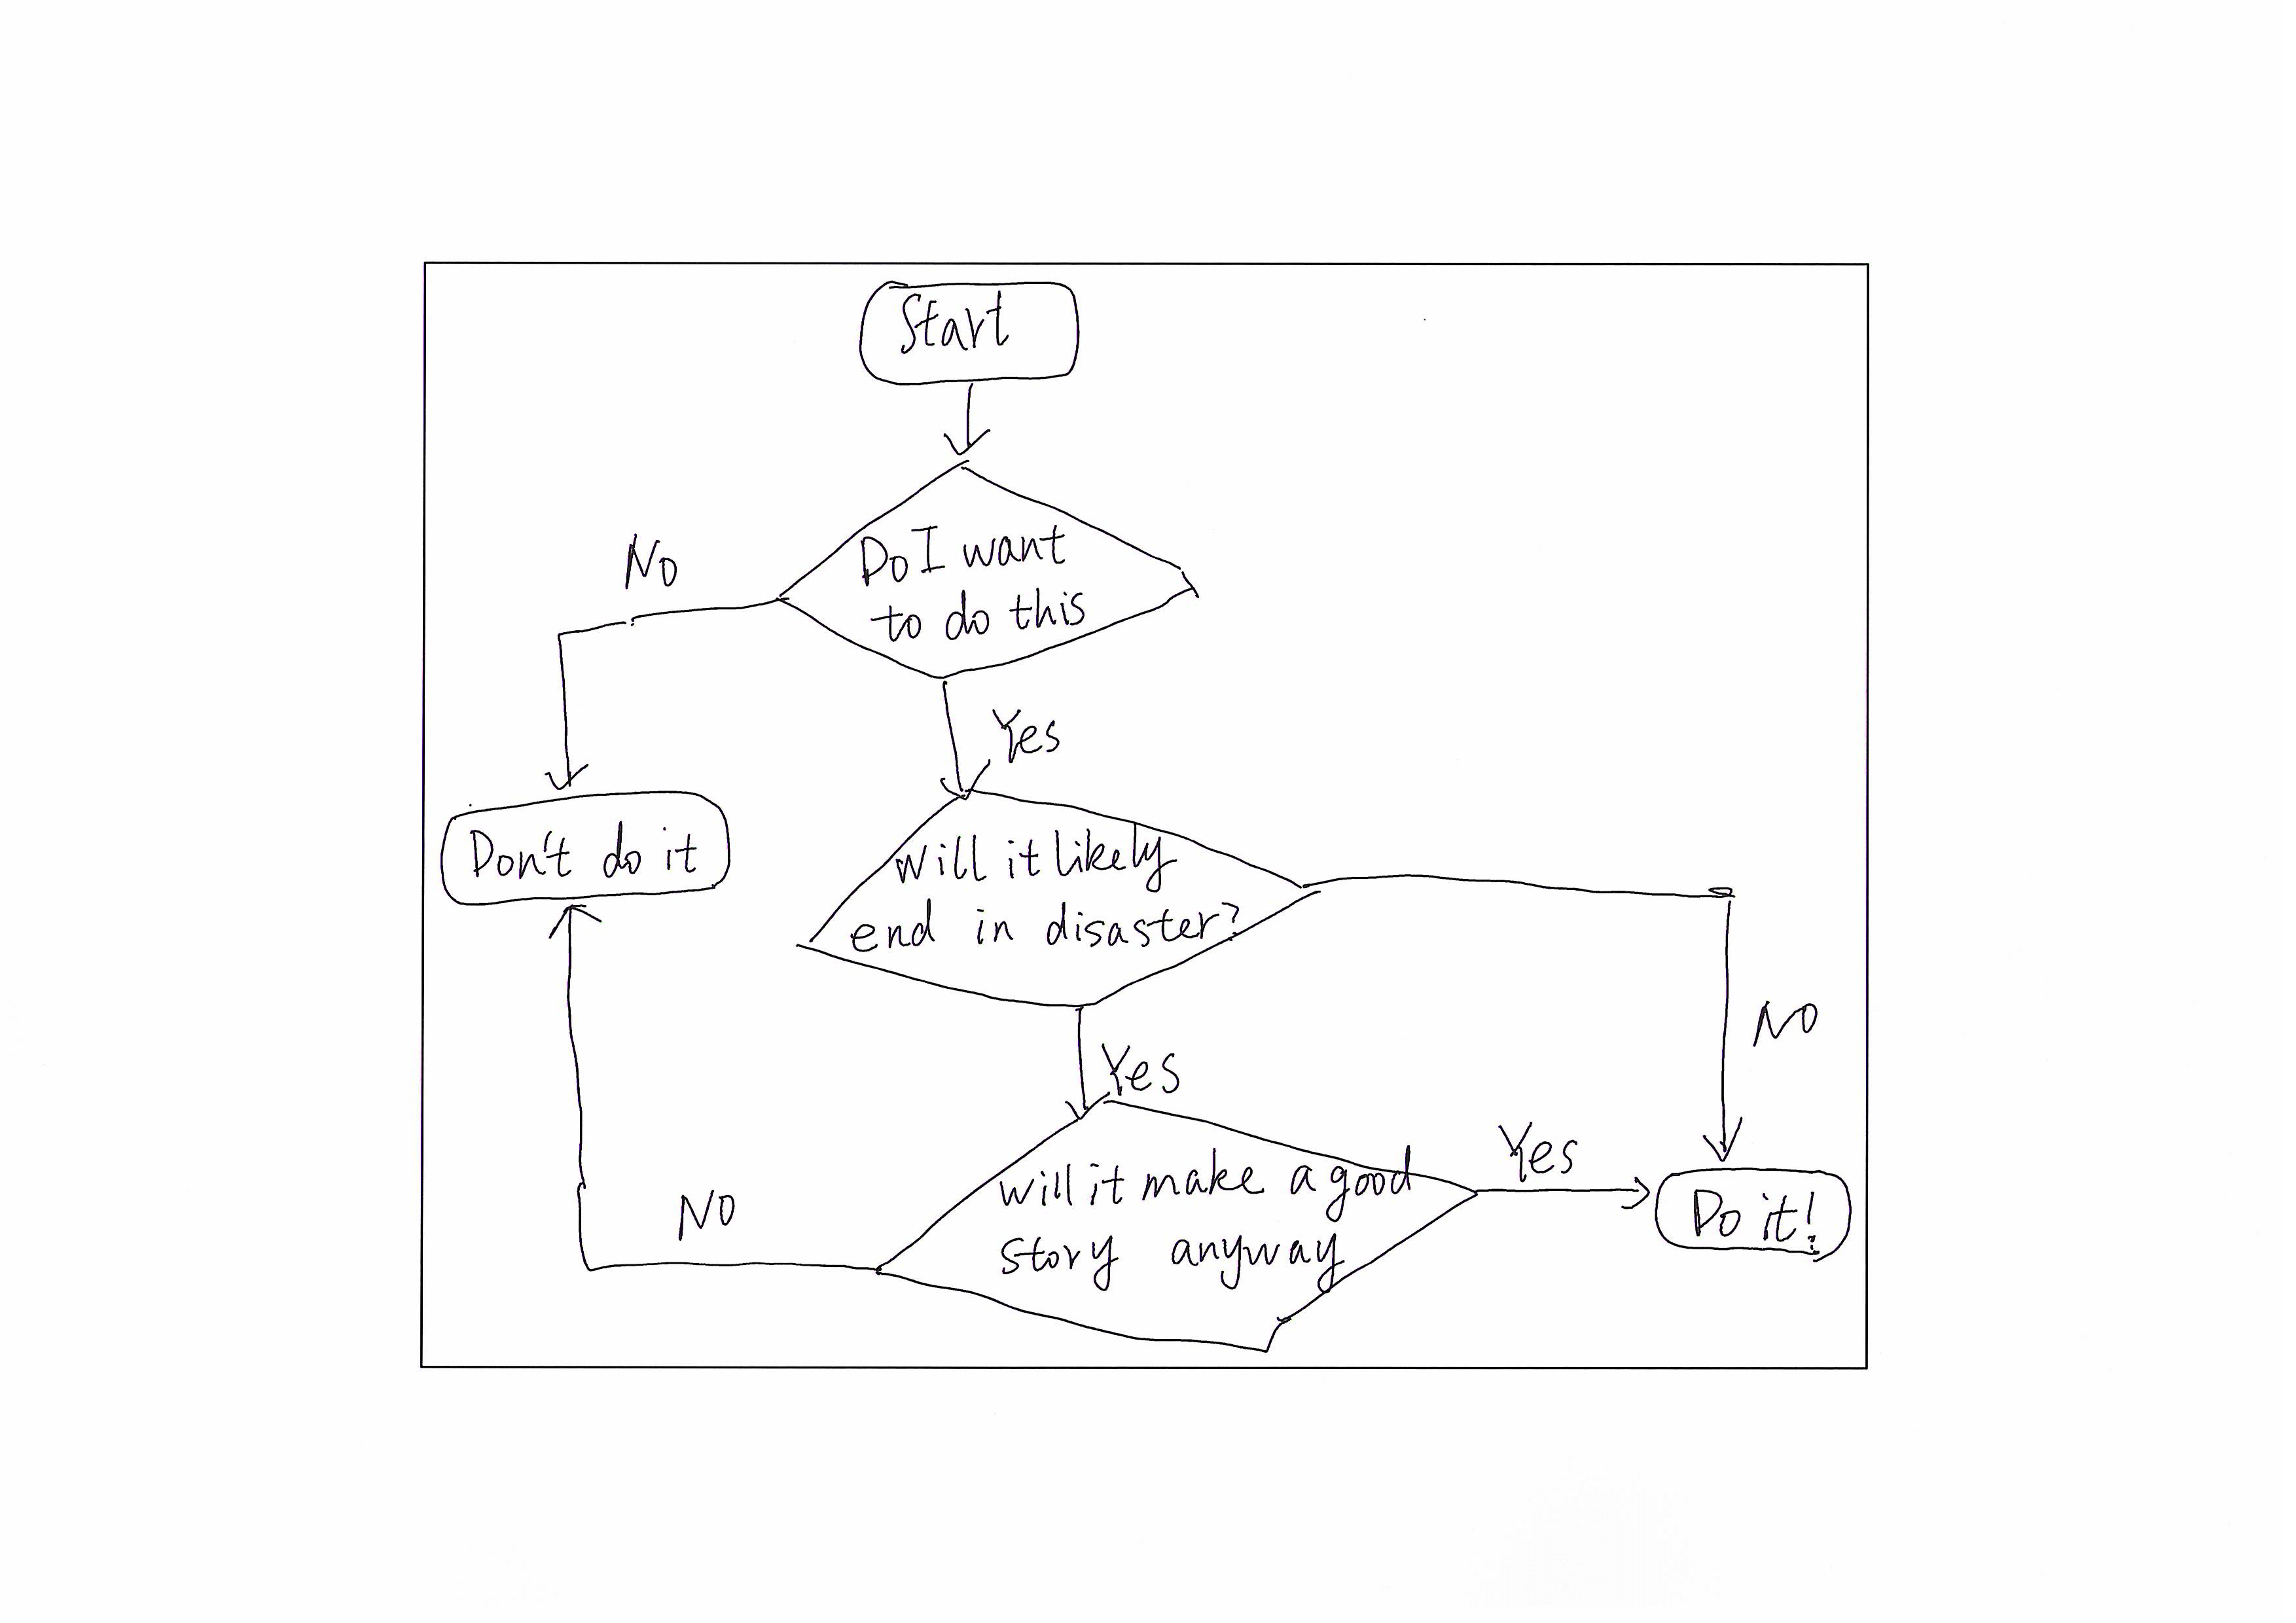 Start
Do I want
to do this
No
Yes
Don't do it
will it likely
end in disaster?
No
Yes
will it make a good
story anyway
Yes
No
Do it!